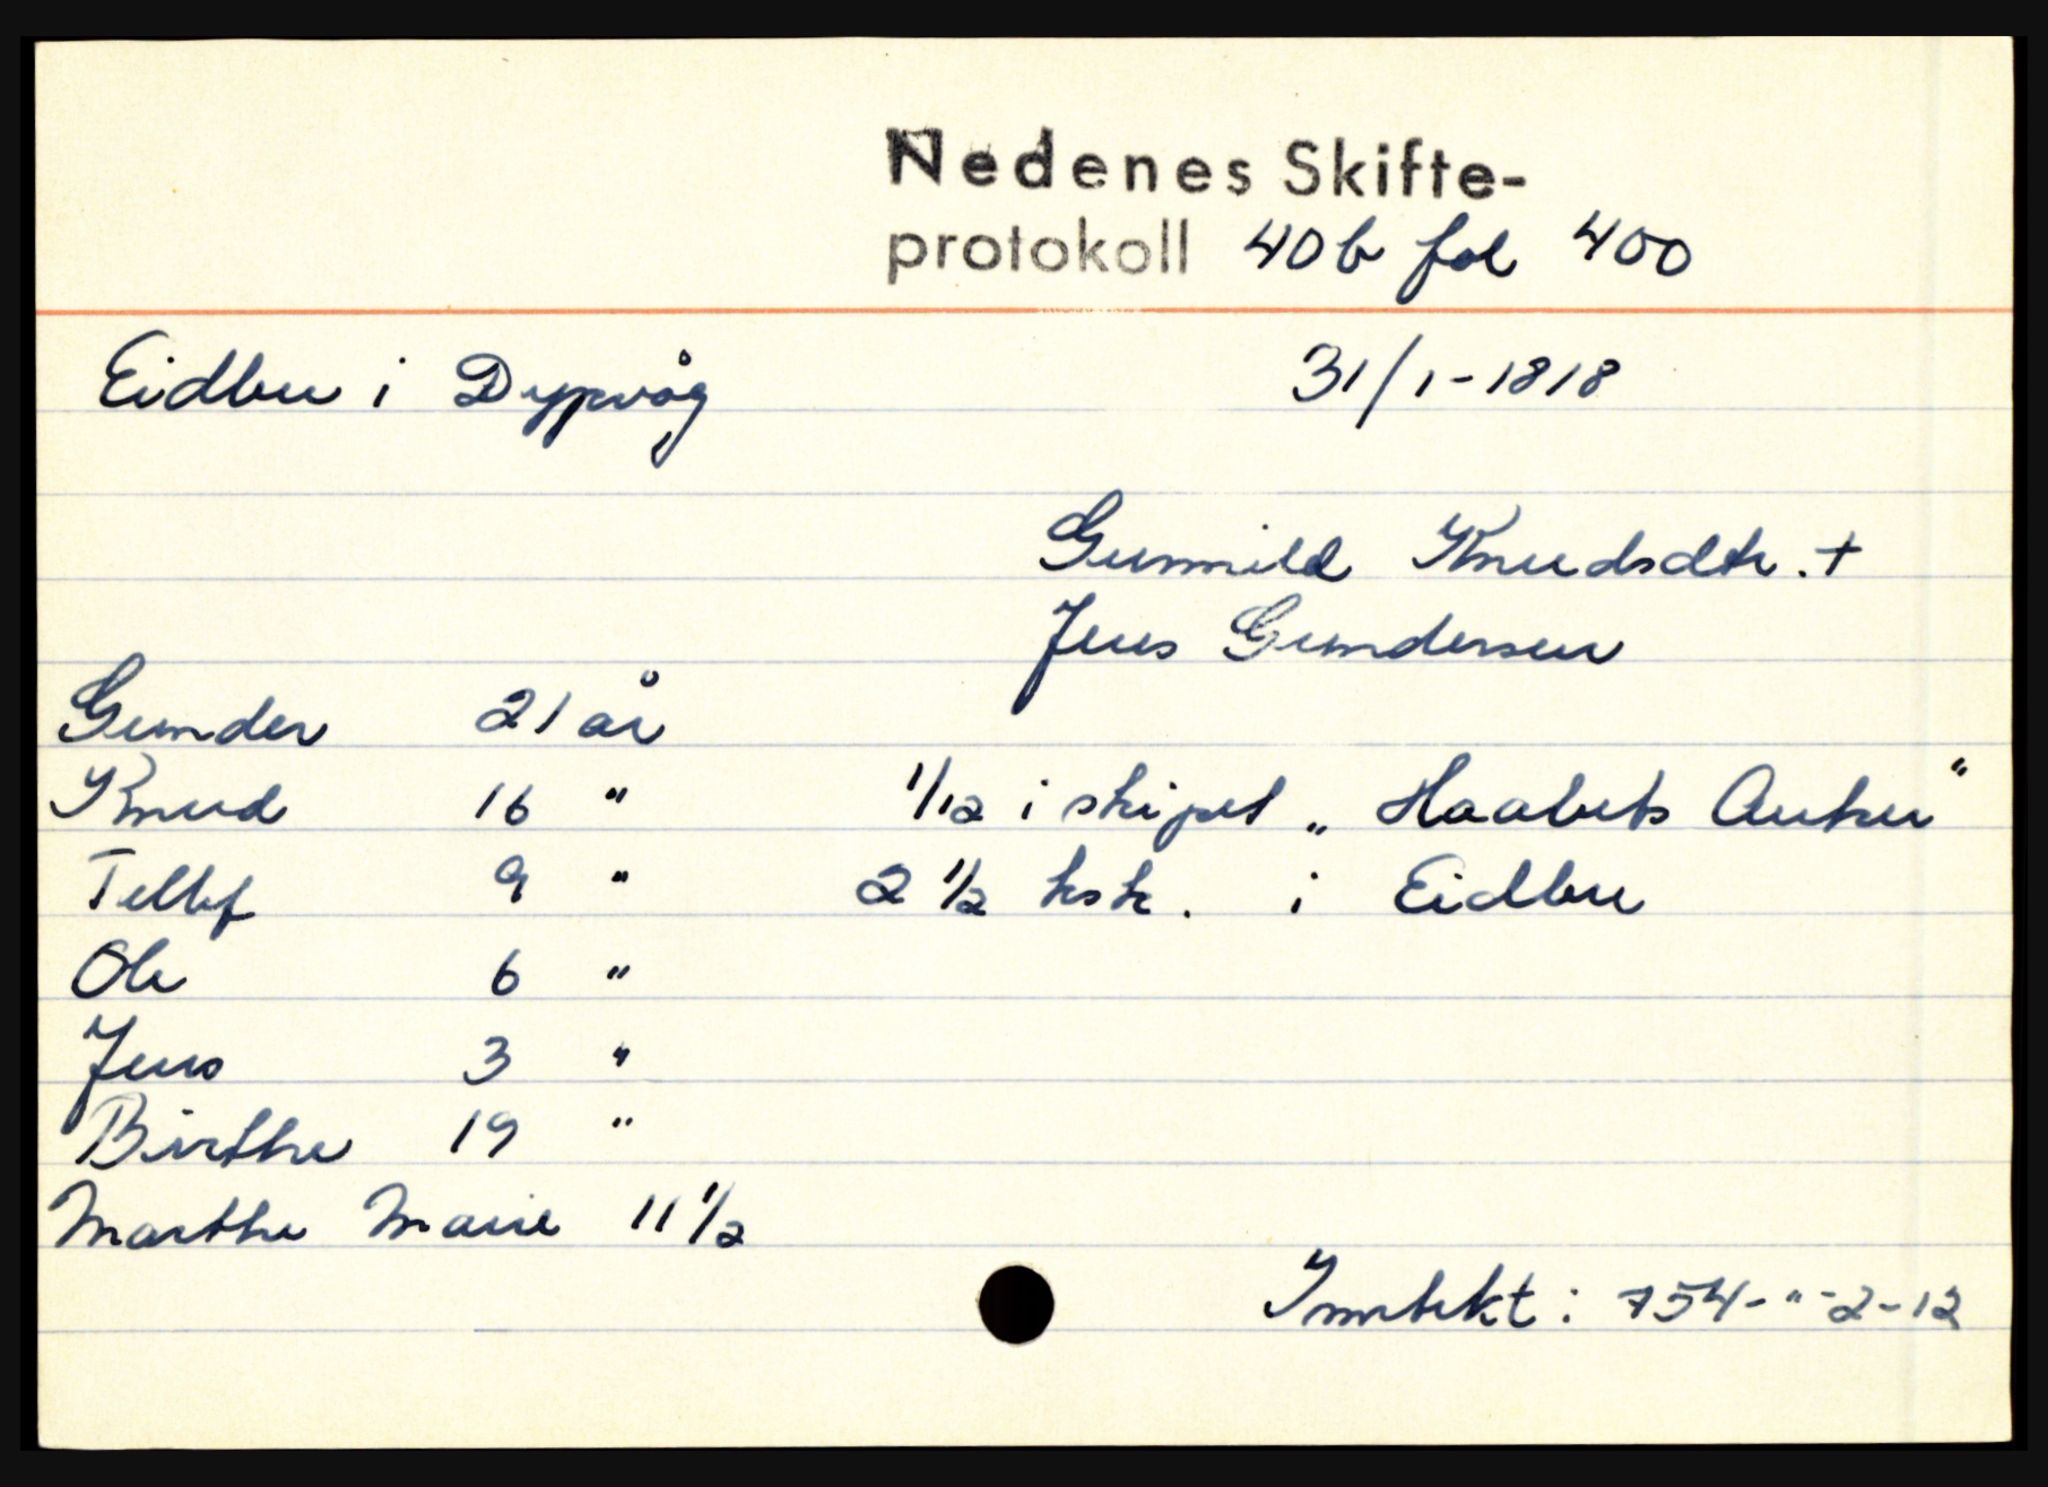 Nedenes Skifte-
protokoll 40b fol 400
Eidbu i Dypvåg 31/1-1818
Gunnild Knudsdtr. +
Jens Gundersen
Gunder 21 år
Knud 16 " 1/12 i skipet „Haabets Anker"
Tellef 9 " 2 1/2 ksk. i Eidbu
Ole 6 "
Jens 3 "
Birthe 19 "
Marthe Marie 11 1/2
Inntekt: 754-"-2-12